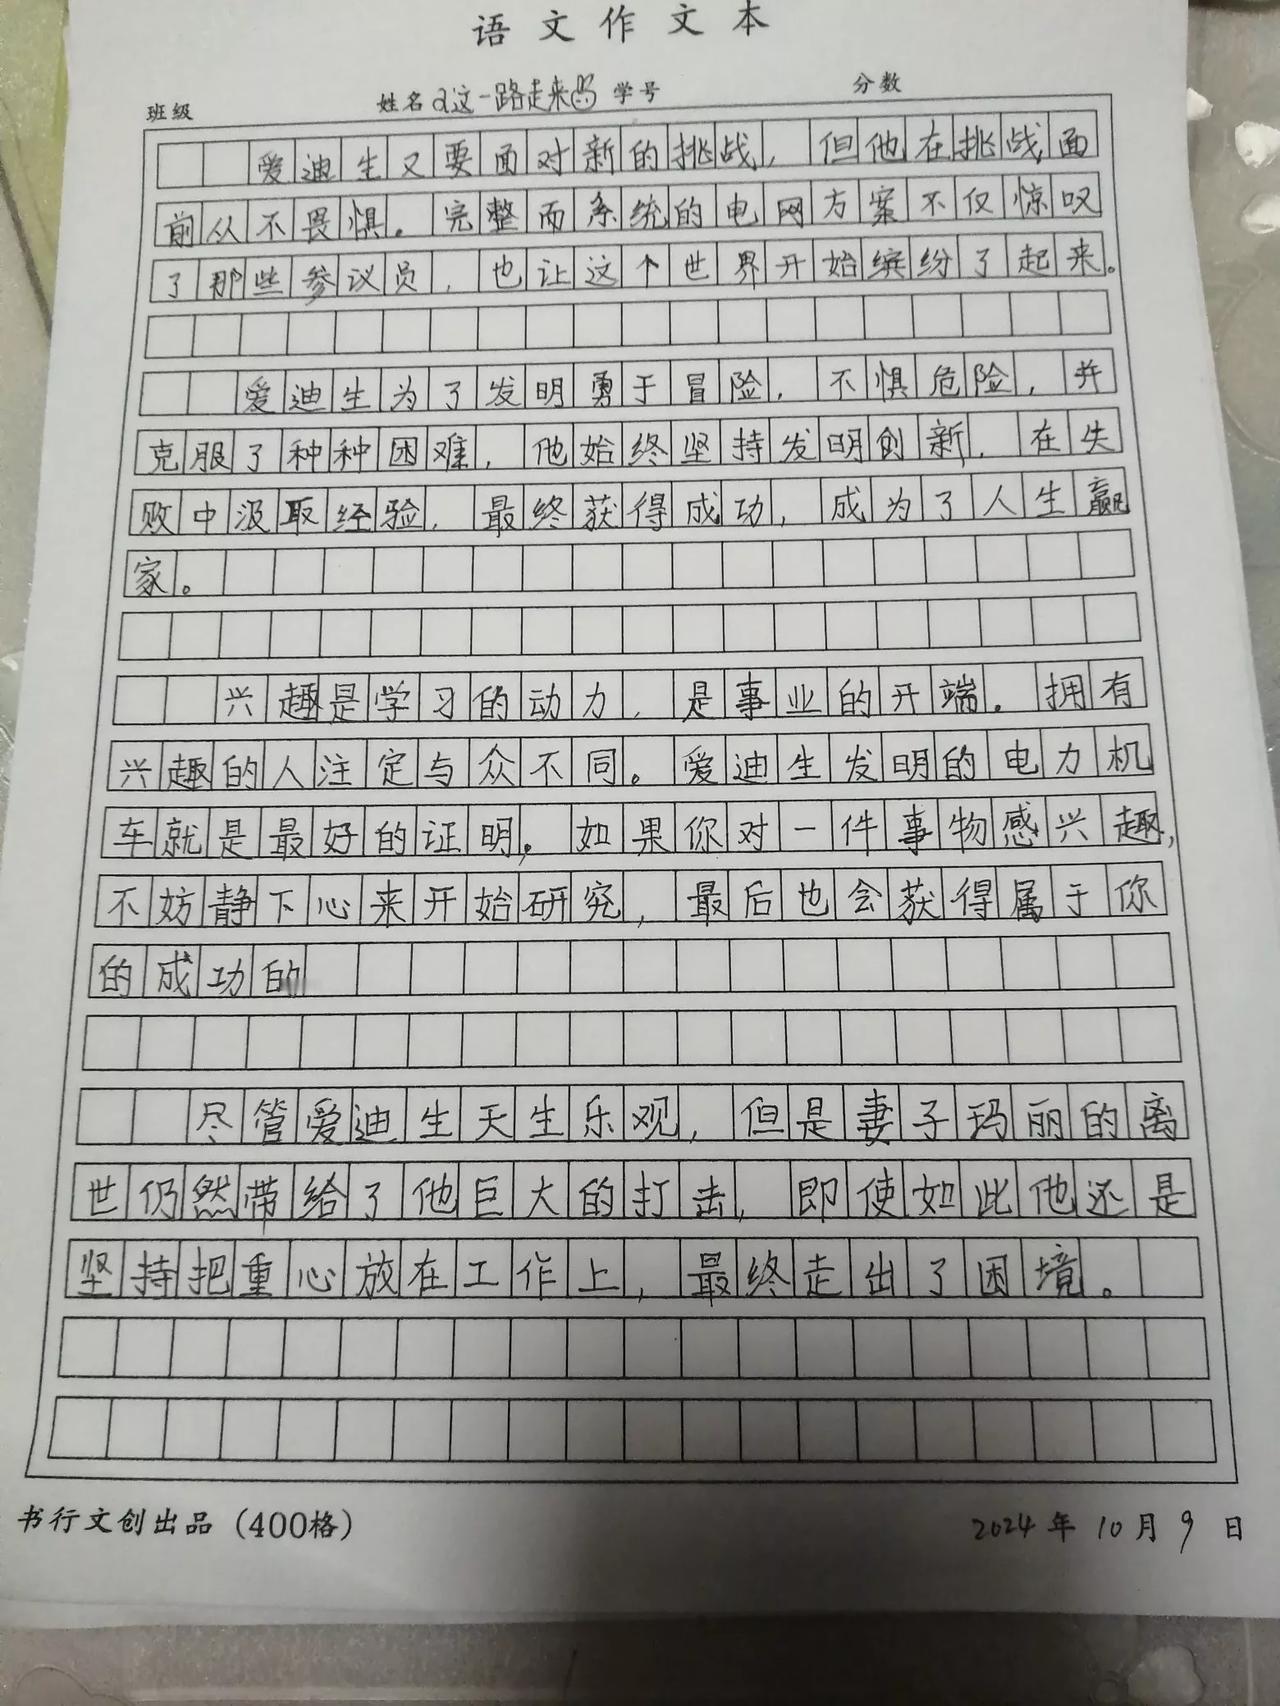 语文作文本
班级 姓名 这一路走来 学号 分数
爱迪生又要面对新的挑战，但他在挑战面
前从不畏惧。完整而系统的电网方案不仅惊叹
了那些参议员，也让这个世界开始缤纷了起来。
爱迪生为了发明勇于冒险，不惧危险，并
克服了种种困难，他始终坚持发明创新，在失
败中汲取经验，最终获得成功，成为了人生赢
家。
兴趣是学习的动力，是事业的开端。拥有
兴趣的人注定与众不同。爱迪生发明的电力机
车就是最好的证明。如果你对一件事物感兴趣，
不妨静下心来开始研究，最后也会获得属于你
的成功的
尽管爱迪生天生乐观，但是妻子玛丽的离
世仍然带给了他巨大的打击，即使如此他还是
坚持把重心放在工作上，最终走出了困境。
书行文创出品（400格） 2024年10月9日